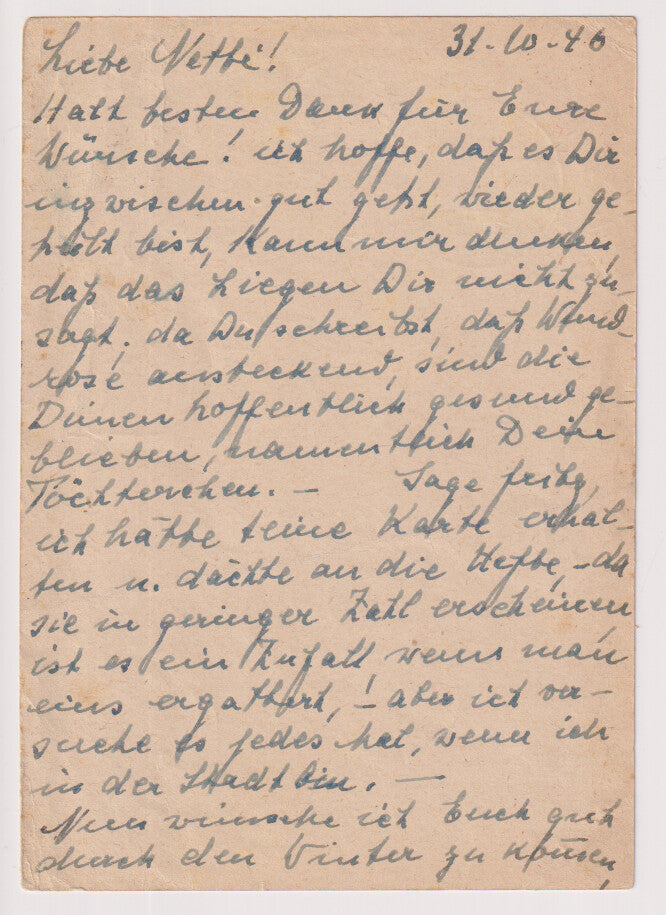 Liebe Nettè! 31-10-46
Habt besten Dank für Eure
Wünsche! ich hoffe, daß es Dir
inzwischen gut geht, wieder ge-
heilt bist, kann mir denken,
daß das Liegen Dir nicht zu-
sagt, da Du schreibst, daß Wund-
rose ansteckend, sind die
Deinen hoffentlich gesund ge-
blieben, namentlich Deine
Töchterchen. — Sage Fritz,
ich hätte seine Karte erhal-
ten u. dächte an die Hefte, - da
sie in geringer Zahl erscheinen,
ist es ein Zufall, wenn man
eins ergattert, ! - aber ich ver-
suche es jedes Mal, wenn ich
in der Stadt bin. —
Nun wünsche ich Euch gut
durch den Winter zu kommen,